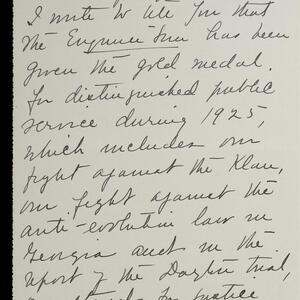 I write to tell you that
the Enquirer-Sun has been
given the gold medal
for distinguished public
service during 1925,
which includes our
fight against the Klan,
our fight against the
anti-evolution law in
Georgia and in the
report of the Dayton trial,
for justice